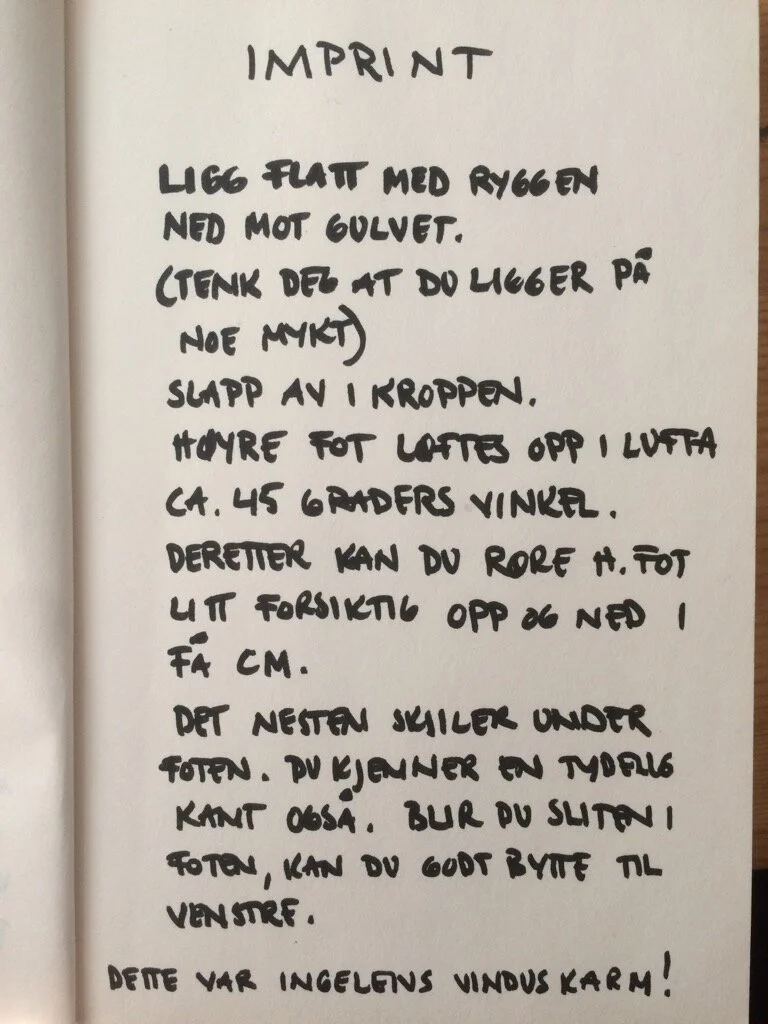 IMPRINT
LIGG FLATT MED RYGGEN
NED MOT GULVET.
(TENK DEG AT DU LIGGER PÅ
NOE MYKT)
SLAPP AV I KROPPEN.
HØYRE FOT LØFTES OPP I LUFTA
CA. 45 GRADERS VINKEL.
DERETTER KAN DU RØRE H. FOT
LITT FORSIKTIG OPP OG NED I
FÅ CM.
DET NESTEN SMILER UNDER
FOTEN. DU KJENNER EN TYDELIG
KANT OGSÅ. BLIR DU SLITEN I
FOTEN, KAN DU GODT BYTTE TIL
VENSTRE.
DETTE VAR INGELENS VINDUSKARM!